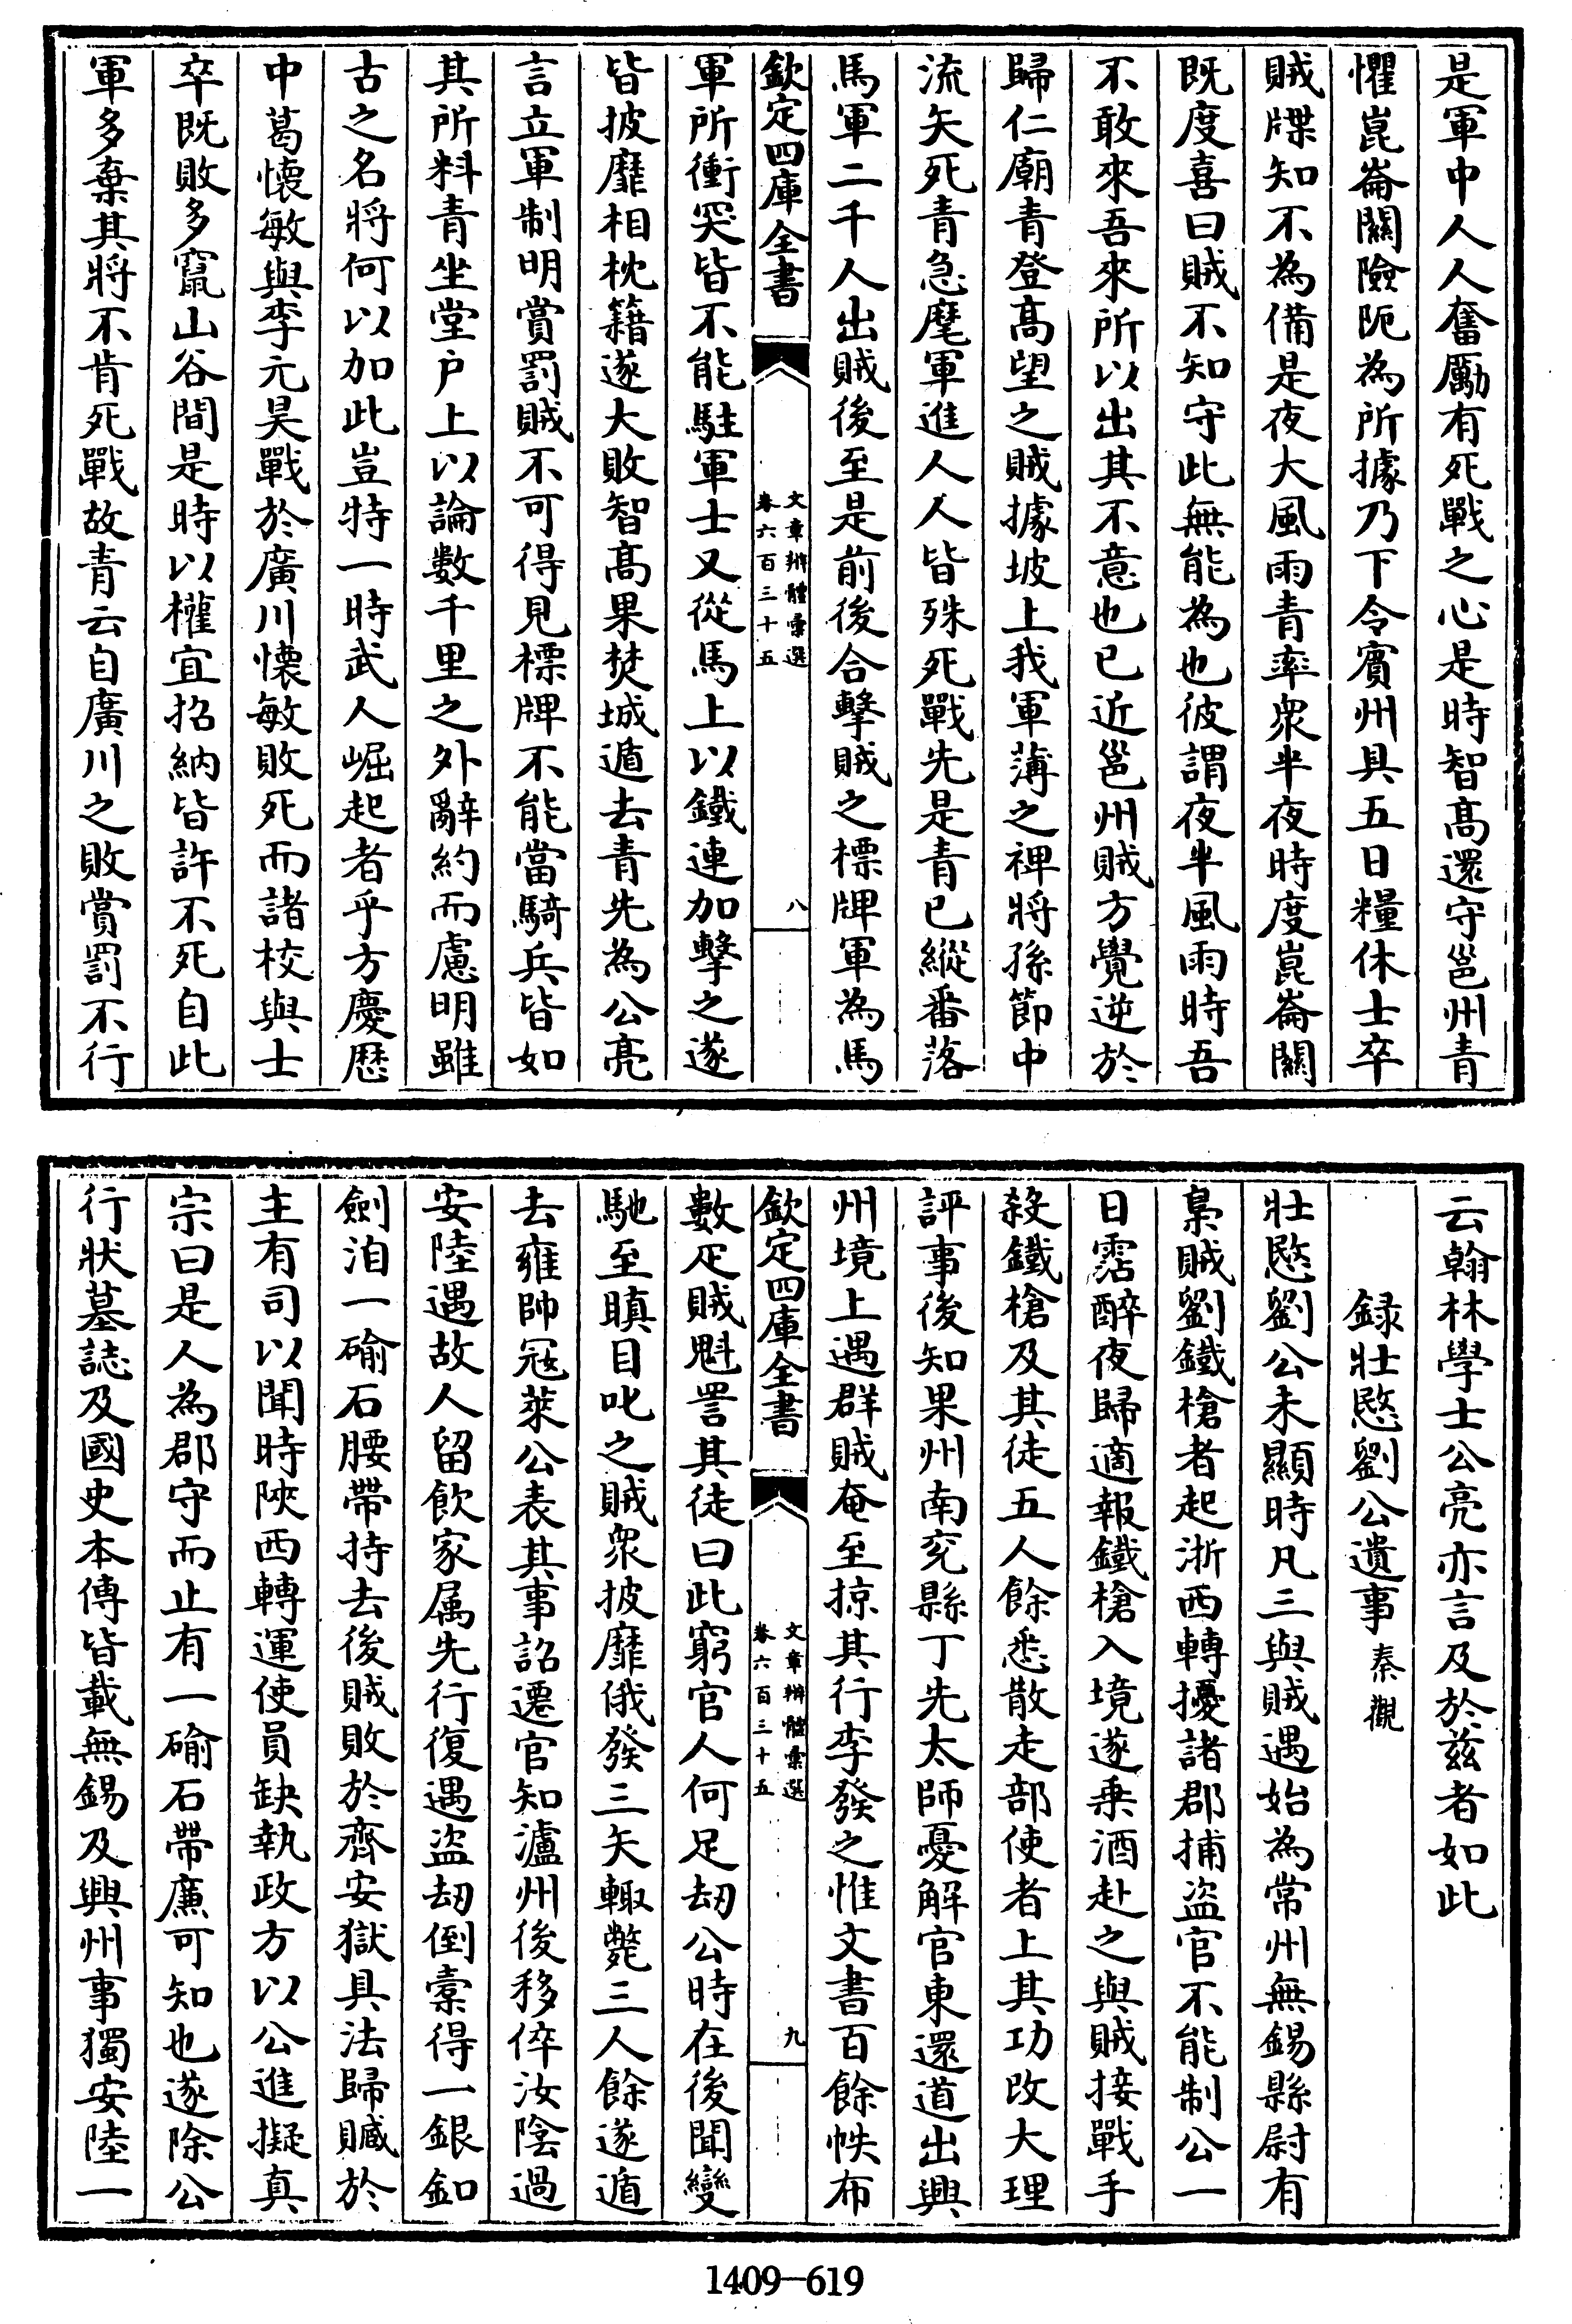 是軍中人人奮勵有死戰之心是時智髙還守邕州青
懼崑崙關險阨為所據乃下令賓州具五日糧休士卒
賊牒知不為備是夜大風雨青率衆半夜時度崑崙關
既度喜曰賊不知守此無能為也彼謂夜半風雨時吾
不敢來吾來所以出其不意也已近邕州賊方覺逆於
歸仁廟青登髙望之賊據坡上我軍薄之裨將孫節中
流矢死青急麾軍進人人皆殊死戰先是青已縱番落
馬軍二千人出賊後至是前後合擊賊之標牌軍為馬
欽定四庫全書
文章辨體彙選
卷六百三十五
八
軍所衝突皆不能駐軍士又從馬上以鐵連加擊之遂
皆披靡相枕籍遂大敗智髙果焚城遁去青先為公亮
言立軍制明賞罰賊不可得見標牌不能當騎兵皆如
其所料青坐堂户上以論數千里之外辭約而慮明雖
古之名將何以加此豈特一時武人崛起者乎方慶厯
中葛懐敏與李元昊戰於廣川懐敏敗死而諸校與士
卒既敗多竄山谷間是時以權宜招納皆許不死自此
軍多棄其將不肯死戰故青云自廣川之敗賞罰不行
云翰林學士公亮亦言及於兹者如此
録壯愍劉公遺事 秦觀
壯愍劉公未顯時凡三與賊遇始為常州無錫縣尉有
梟賊劉鐵槍者起浙西轉擾諸郡捕盗官不能制公一
日霑醉夜歸適報鐵槍入境遂乗酒赴之與賊接戰手
殺鐵槍及其徒五人餘悉散走部使者上其功改大理
評事後知果州南充縣丁先太師憂解官東還道出興
州境上遇群賊奄至掠其行李發之惟文書百餘帙布
欽定四庫全書
文章辨體彙選
卷六百三十五
九
數疋賊魁詈其徒曰此窮官人何足刼公時在後聞變
馳至瞋目叱之賊衆披靡俄發三矢輙斃三人餘遂遁
去雍帥冦萊公表其事詔遷官知瀘州後移倅汝陰過
安陸遇故人留飲家属先行復遇盗刼倒橐得一銀釦
劍洎一碖石腰帶持去後賊敗於齊安獄具法歸贓於
主有司以聞時陜西轉運使員缺執政方以公進擬真
宗曰是人為郡守而止有一碖石帶廉可知也遂除公
行狀墓誌及國史本傳皆載無錫及興州事獨安陸一
1409—619